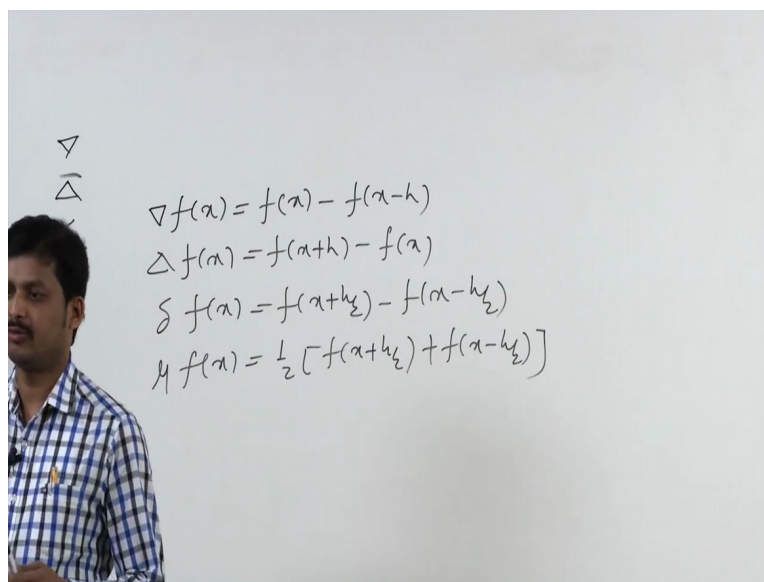 ∇
Δ
∇f(x) = f(x) - f(x-h)
Δ f(x) = f(x+h) - f(x)
δ f(x) = f(x+h/2) - f(x-h/2)
μ f(x) = 1/2 [f(x+h/2) + f(x-h/2)]